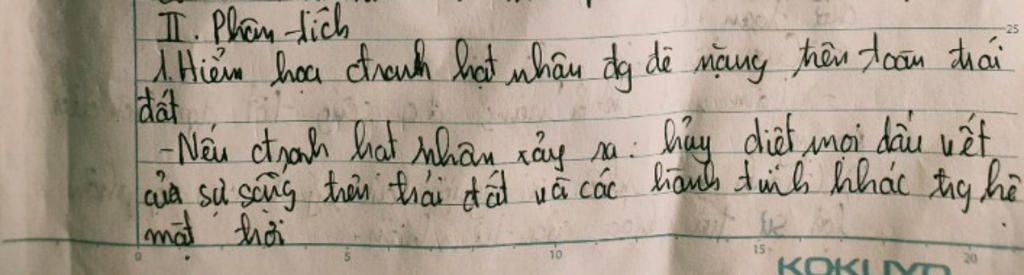 II. Phân tích
1. Hiểm họa ctranh hạt nhân đg đè nặng trên toàn trái
đất
- Nếu ctranh hạt nhân xảy ra: hủy diệt mọi dấu vết
của sự sống trên trái đất và các hành tinh khác trg hệ
mặt trời
25
0 5 10 15 20
KOKUYO